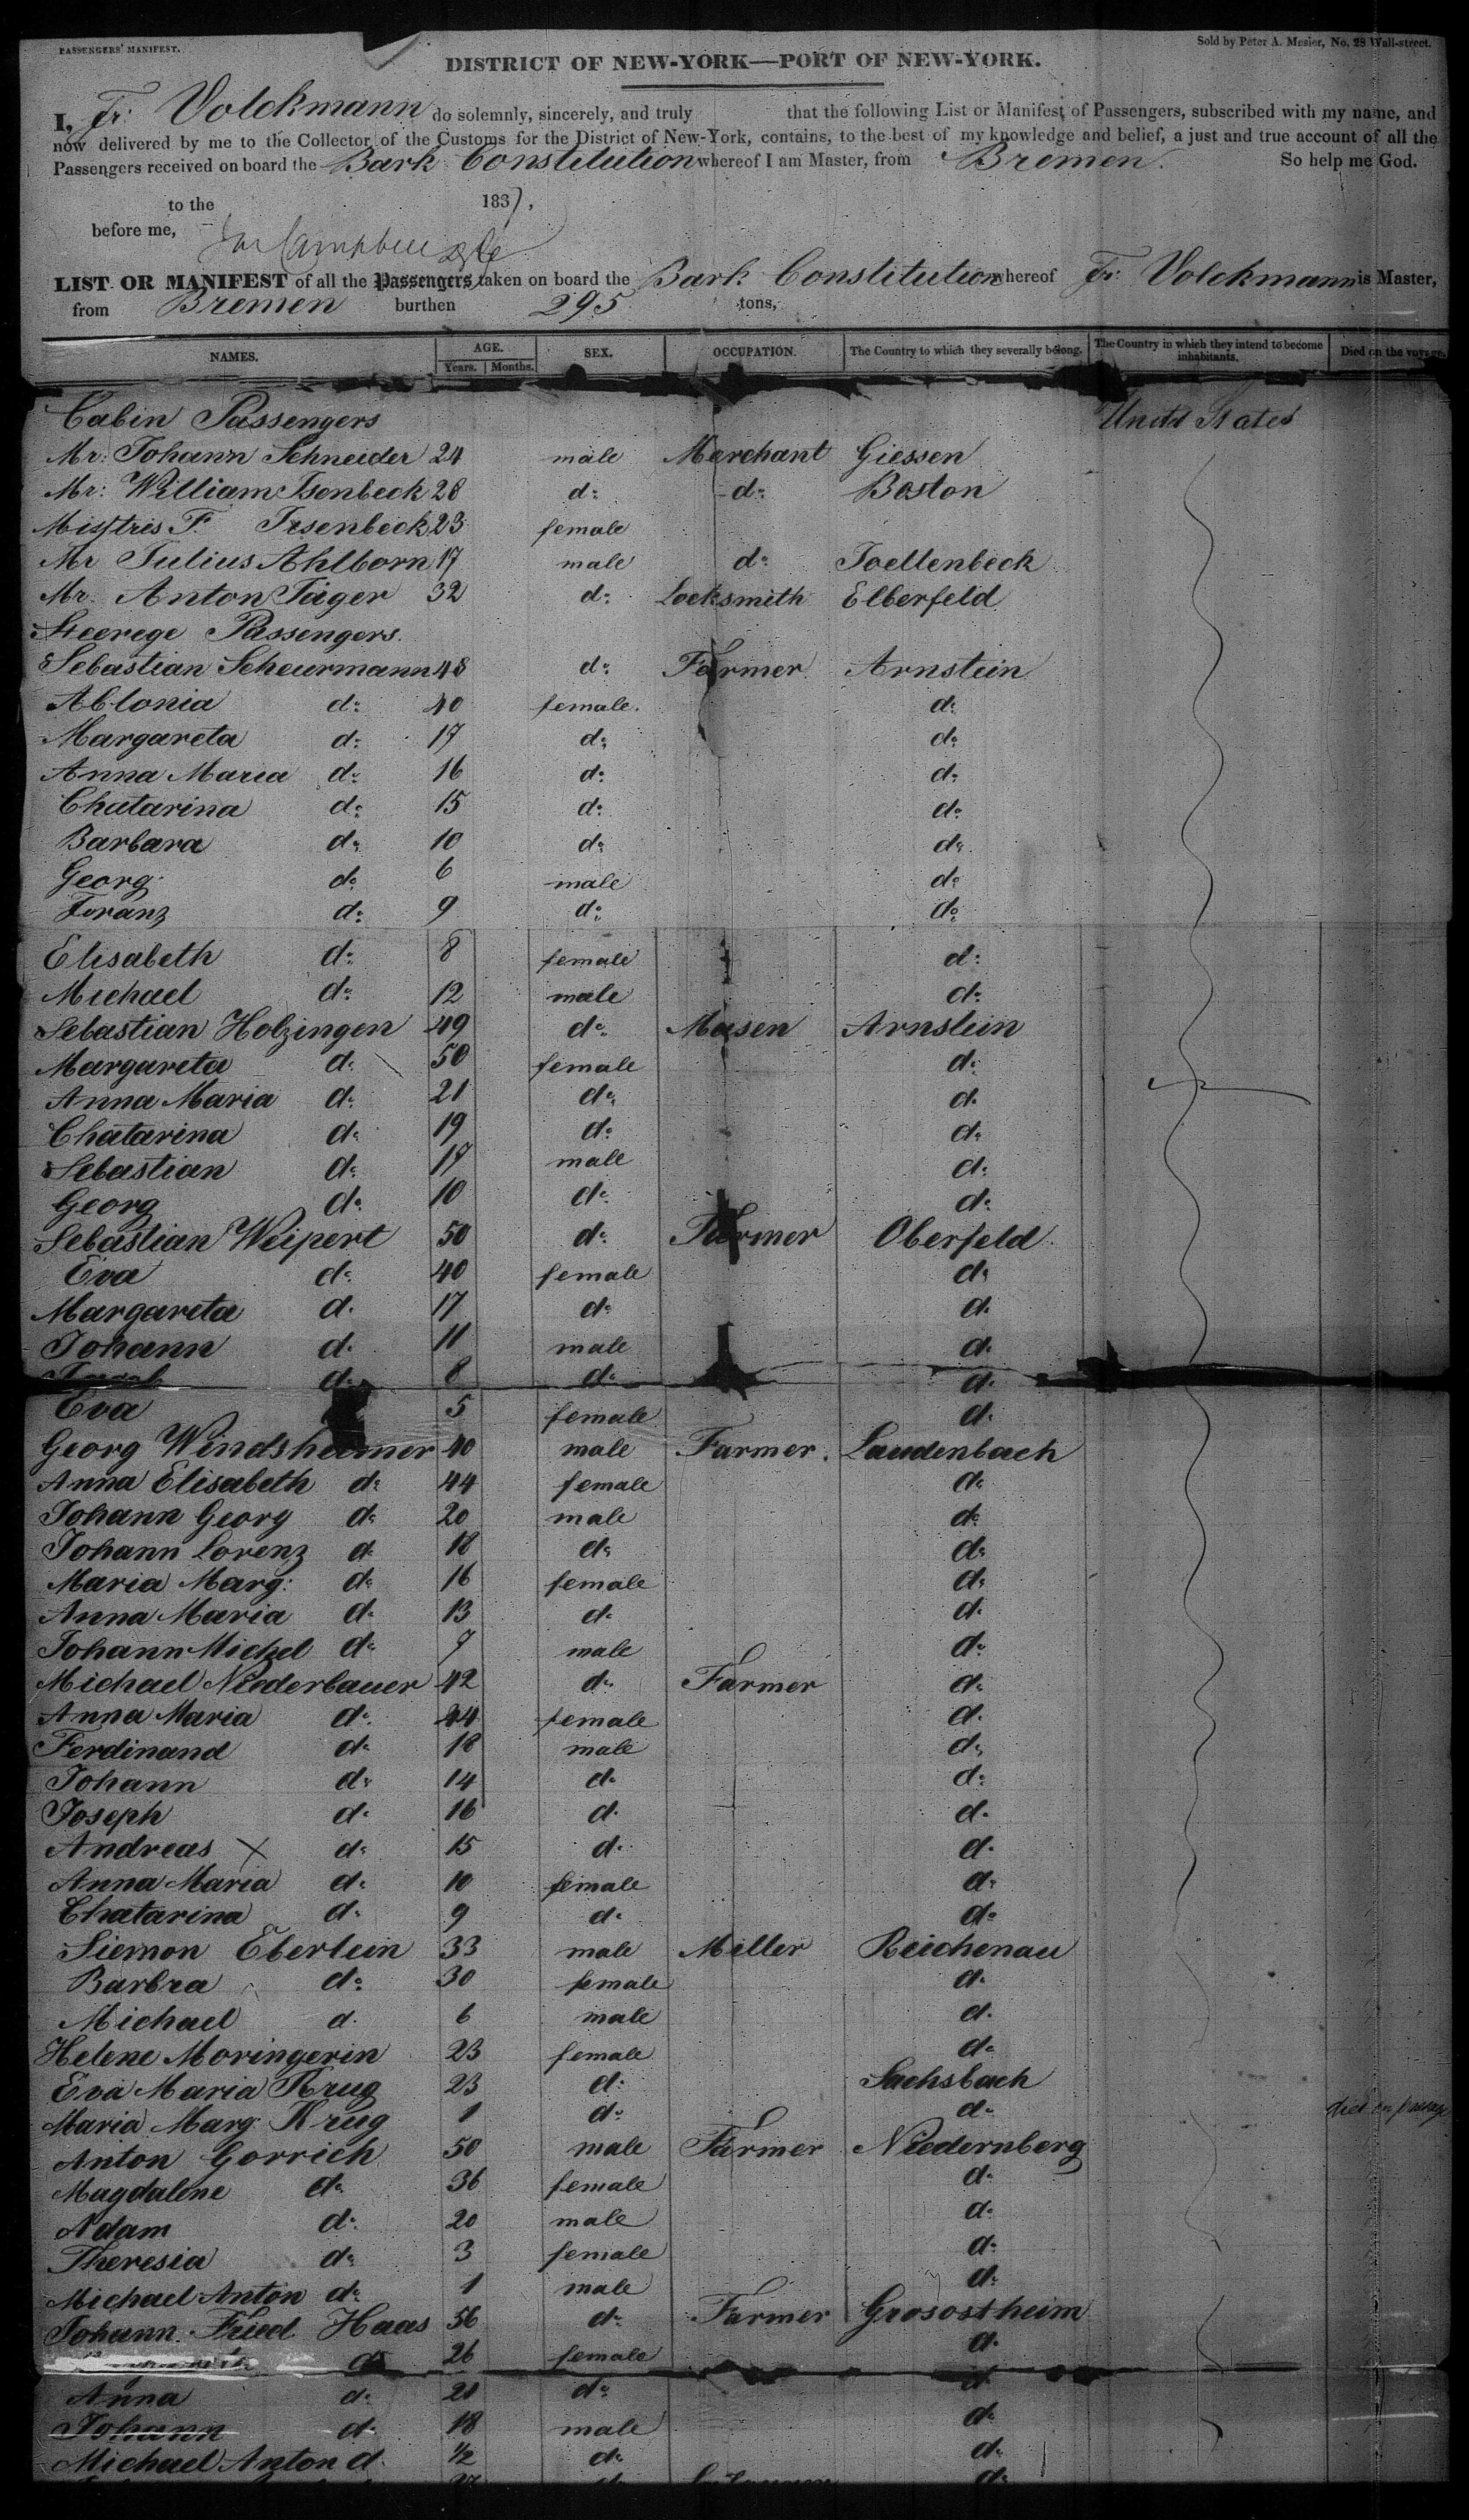 PASSENGERS' MANIFEST.
Sold by Peter A. Mesier, No. 28 Wall-street.
DISTRICT OF NEW-YORK—PORT OF NEW-YORK.
I, Fr: Volckmann do solemnly, sincerely, and truly that the following List or Manifest of Passengers, subscribed with my name, and
now delivered by me to the Collector of the Customs for the District of New-York, contains, to the best of my knowledge and belief, a just and true account of all the
Passengers received on board the Bark Constitution whereof I am Master, from Bremen. So help me God.
to the 1837,
before me,
LIST OR MANIFEST of all the Passengers taken on board the Bark Constitution whereof Fr: Volckmann is Master,
from Bremen burthen 295 tons,
NAMES. AGE. SEX. OCCUPATION. The Country to which they severally belong. The Country in which they intend to become inhabitants. Died on the voyage.
Years. Months.
Cabin Passengers United States
Mr: Johann Schneider 24 male Merchant Giessen
Mr: William Isenbeck 28 d: d: Boston
Mistris F. Isenbeck 23 female
Mr Julius Ahlborn 17 male d: Joellenbeck
Mr. Anton Jäger 32 d: Locksmith Elberfeld
Steerege Passengers.
Sebastian Scheurmann 48 d: Farmer Arnstein
Ablonia d: 40 female. d:
Margareta d: 17 d: d:
Anna Maria d: 16 d: d:
Chatarina d: 15 d: d:
Barbara d: 10 d: d:
Georg d: 6 male d:
Franz d: 9 d: d:
Elisabeth d: 8 female d:
Michael d: 12 male d:
Sebastian Holzingen 49 d: Masen Arnstein
Margareta d: 50 female d:
Anna Maria d: 21 d: d.
Chatarina d: 19 d: d:
Sebastian d: 17 male d:
Georg d: 10 d: d:
Sebastian Weipert 50 d: Farmer Oberfeld
Eva d: 40 female d:
Margareta d. 17 d: d.
Johann d. 11 male d.
d: 8 d: d.
Eva 5 female d.
Georg Windsheimer 40 male Farmer. Laudenbach
Anna Elisabeth d: 44 female d:
Johann Georg d: 20 male d:
Johann Lorenz d 18 d: d:
Maria Marg: d: 16 female d:
Anna Maria d. 13 d. d.
Johann Michel d: 7 male d:
Michael Niederbauer 42 d: Farmer d:
Anna Maria d: 44 female d.
Ferdinand d: 18 male d:
Johann d: 14 d. d:
Joseph d: 16 d. d.
Andreas X d: 15 d. d.
Anna Maria d: 10 female d:
Chatarina d. 9 d. d:
Siemon Eberlein 33 male Miller Reichenau
Barbra d: 30 female d.
Michael d. 6 male d.
Helene Moringerin 23 female d:
Eva Maria Krug 23 d: Sachsbach
Maria Marg: Krug 1 d: d. died on passage
Anton Gorrich 50 male Farmer Niedernberg
Magdalene d: 36 female d:
Adam d: 20 male d:
Theresia d: 3 female d:
Michael Anton d: 1 male d:
Johann. Fried. Haas 56 d: Farmer Grosostheim
d: 26 female d.
Anna d: 21 d: d.
Johann d: 18 male d:
Michael Anton d. 1/2 d: d: